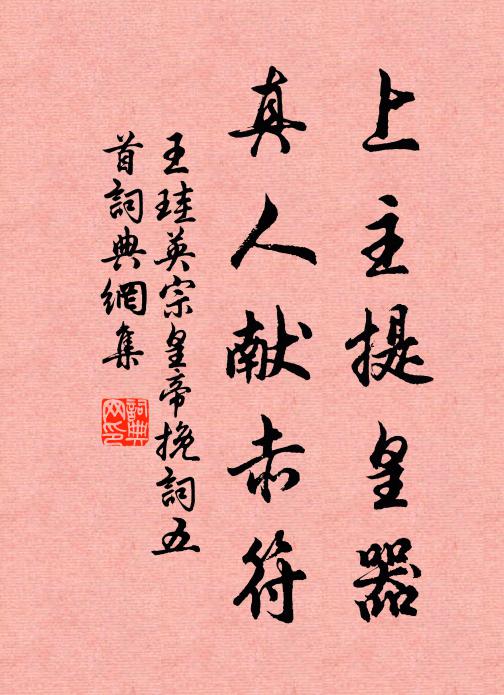 上主提皇器
真人献赤符
王珪英宗皇帝挽詞五
首詞典網集
詞典
网印